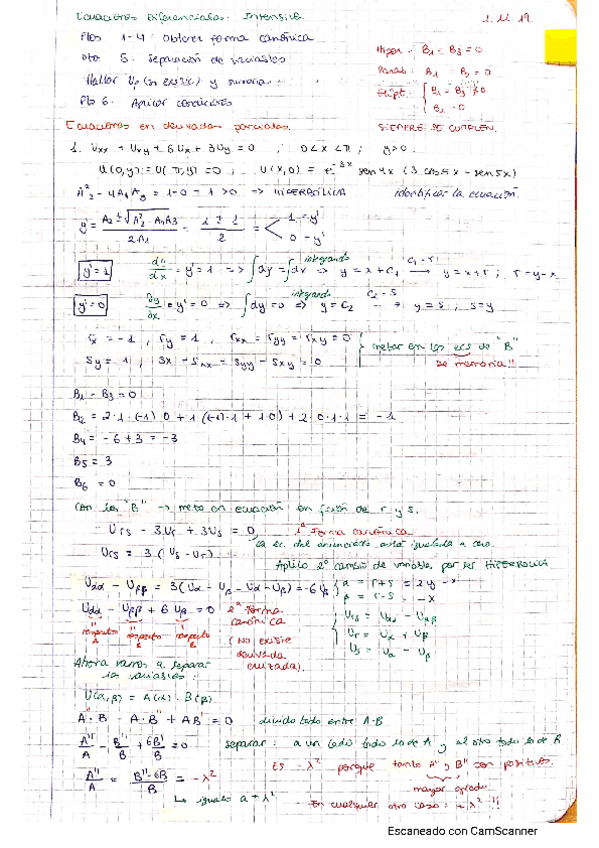 Ecuaciones Diferenciales. Intensivo. 1.11.19
Ptos 1-4: Obtener forma canónica
Pto 5. Separación de variables
Hallar Up (si existe) y sumarla.
Pto 6. Aplicar condiciones
Hiper: B1 = B3 = 0
Parab: B1 = B2 = 0
Elípt: { B1 = B3 ≠ 0
B2 = 0
SIEMPRE SE CUMPLEN.
Ecuaciones en derivadas parciales.
1. Uxx + Uxy + 6Ux + 3Uy = 0 ; 0 < x < π ; y > 0.
U(0,y) = U(π,y) = 0 ; U(x,0) = e^-3x sen 4x (3 cos 5x - sen 5x)
A2² - 4A1A3 = 1 - 0 = 1 > 0 => HIPERBÓLICA identificar la ecuación.
y' = (A2 ± √(A2² - A1A3)) / 2A1 = (1 ± 1) / 2 = < 1 = y'
0 = y'
y' = 1 dy/dx = y' = 1 => ∫dy = ∫dx => integrando y = x + C1 C1 = r → y = x + r ; r = y - x
y' = 0 dy/dx = y' = 0 => ∫dy = 0 => integrando y = C2 C2 = s → y = s ; s = y
rx = -1 , ry = 1 , rxx = ryy = rxy = 0
sy = 1 ; sx = sxx = syy = sxy = 0
meter en las ecs de "B"
De memoria!!
B1 = B3 = 0
B2 = 2·1·(-1)·0 + 1(-1)·1 + 1·0) + 2·0·1·1 = -1
B4 = -6 + 3 = -3
B5 = 3
B6 = 0
Con las "B" → meto en ecuación en fción de r y s.
- Urs - 3Ur + 3Us = 0 1ª Forma canónica
La ec. del enunciado está igualada a cero.
Urs = 3 (Us - Ur)
Aplico 2º cambio de variable por ser HIPERBÓLICA
Uαα - Uββ = 3(Uα - Uβ - Uα - Uβ) = -6Uβ { α = r+s = 2y - x
β = r-s = -x
Uαα - Uββ + 6Uβ = 0 2ª Forma canónica
respecto A respecto B respecto B
(No existe derivada cruzada).
{ Urs = Uαα - Uββ
Ur = Uα + Uβ
Us = Uα - Uβ
Ahora vamos a separar
las variables:
U(α,β) = A(α) · B(β)
A''·B - A·B'' + AB' = 0 divido todo entre A·B
A''/A - B''/B + 6B'/B = 0 separar: a un lado todo lo de A y al otro todo lo de B
A''/A = (B'' - 6B)/B = -λ² Es -λ² porque tanto A'' y B'' son positivos.
mayor grado
↳ igualo a ± λ² En cualquier otro caso: +λ²!!
Escaneado con CamScanner